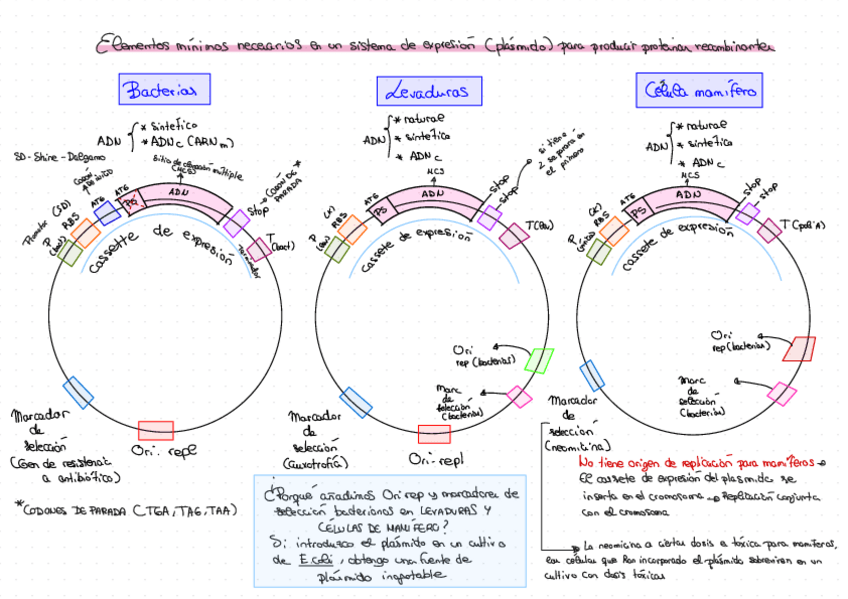 Elementos mínimos necesarios en un sistema de expresión (plásmido) para producir proteínas recombinantes
Bacterias
ADN
* sintético
* ADNc (ARNm)
SD - Shine - Dalgarno
Sitio de clonación múltiple
(MCS)
Promotor
P
(bact)
(SD)
RBS
ATG
ATG
PS
ADN
Stop → CODÓN DE PARADA *
T
(bact)
Terminador
Cassette de expresión
Marcador
de
selección
(Gen de resistencia
a antibiótico)
Ori. repl
* CODONES DE PARADA (TGA, TAG, TAA)
Levaduras
ADN
* natural
* sintético
* ADNc
MCS
si tiene
2 se pararán en
el primero
P
(lev)
(K)
RBS
ATG
PS
ADN
stop
stop
T (lev)
cassete de expresión
Ori
rep (bacterias)
Marc
de
selección
(bacterias)
Marcador
de
selección
(auxotrofía)
Ori-repl
¿Porqué añadimos Ori rep y marcadores de
selección bacterianos en LEVADURAS Y
CÉLULAS DE MAMÍFERO?
Si introduzco el plásmido en un cultivo
de E.coli, obtengo una fuente de
plásmido inagotable
Célula mamífero
ADN
* natural
* sintético
* ADNc
MCS
P
(K)
RBS
ATG
PS
ADN
stop
stop
T (poli A)
cassete de expresión
Ori
rep (bacterias)
Marc
de
selección
(bacterias)
Marcador
de
selección
(neomicina)
No tiene origen de replicación para mamíferos →
El cassete de expresión del plásmido se
inserta en el cromosoma → Replicación conjunta
con el cromosoma
→ La neomicina a ciertas dosis es tóxica para mamíferos,
las células que han incorporado el plásmido sobreviven en un
cultivo con dosis tóxicas